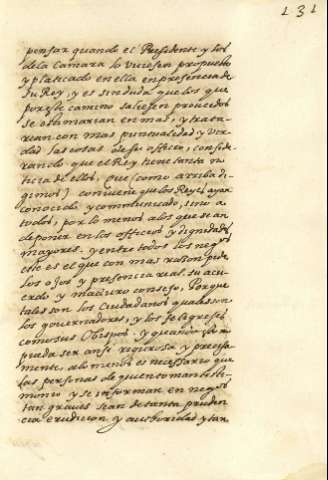 131
pensar quando el Presidente y los
de la Camara lo viessen propuesto
y platicado en ella en presencia de
su Rey, y es sin duda que los que
por este camino saliessen proveidos
se estimarian en mas, y trata-
rian con mas puntualidad y ver-
dad las cosas de su officio, conside-
rando que el Rey tiene tanta no
ticia de ellos, que (como arriba di-
gimos) conviene que los Reyes ayan
conocido y communicado, sino a
todos, por lo menos a los que se an
de poner en los officios y dignidades
mayores. y entre todos los negocios
este es el que con mas rason pide
los ojos y presencia real su acu-
erdo y maduro consejo, Porque
tales son los Ciudadanos quales son
los governadores, y los feligreses
como sus Obispos. y quando no
pueda ser ansi rigurosa y precisa-
mente, alomenos es necessario que
las personas de quien toman testi-
monio y se informan en negocio
tan graves sean de tanta pruden
cia erudicion y authoridad y tan